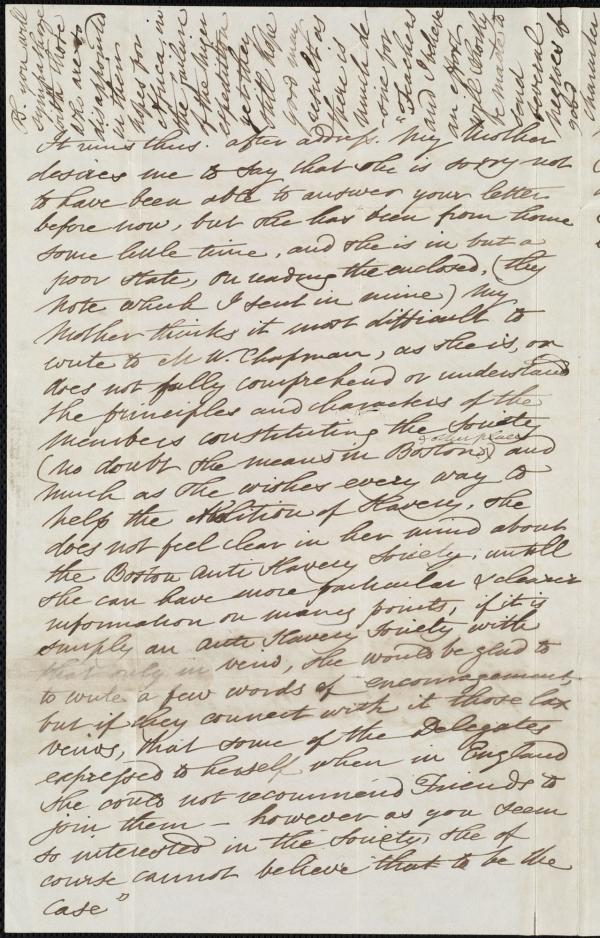 B. you will
sympathize
with those
who are so
disapointed
in their
hopes for
Africa, in
the failure
of the Niger
expedition
yet they
still hope
good may
result as
there is
much to be
done for
Teachers
and I believe
an effort
will shortly
be made to
send
several
negroes of
good
character
It runs thus. after address. "My Mother
desires me to say that she is sorry not
to have been able to answer your letter
before now, but she has been from home
some little time, and she is in but a
poor state, on reading the enclosed, (they
note which I sent in mine) my
Mother thinks it most difficult to
write to M W. Chapman, as she is, or
does not fully comprehend or understand
the principles and characters of the
members constituting the Society
(no doubt she means in Boston & other places) and
much as she wishes every way to
help the Abolition of Slavery, she
does not feel clear in her mind about
the Boston Anti Slavery Society, untill
she can have more particular & clearer
information on many points, if it is
simply an Anti Slavery Society with
that only in veiw, she would be glad to
to write a few words of encouragement,
but if they connect with it those lax
veiws, that some of the Delegates
expressed to herself when in England
she could not recommend Friends to
join them – however as you seem
so interested in the Society, she of
course cannot believe that to be the
case"